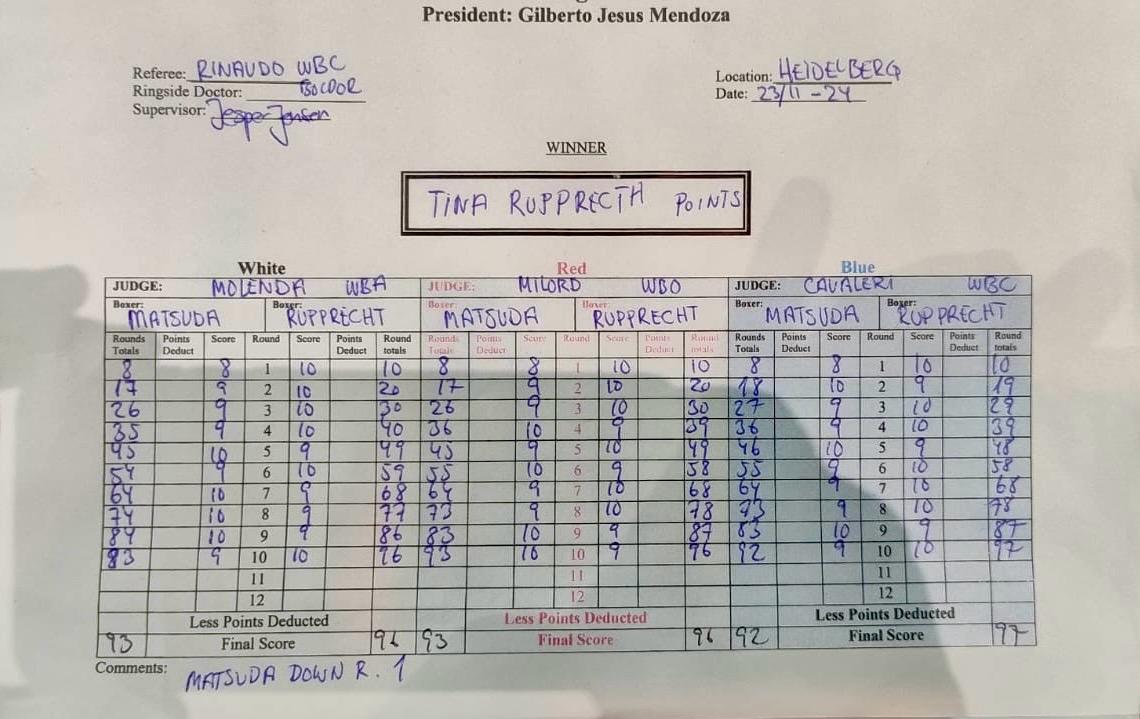 President: Gilberto Jesus Mendoza
Referee: RINAUDO WBC
Location: HEIDELBERG
Ringside Doctor:
Date: 23/11-24
Supervisor: Jesper Jensen
WINNER
TINA RUPPRECTH POINTS
White Red Blue
JUDGE: MOLENDA WBA JUDGE: MILORD WBO JUDGE: CAVALERI WBC
Boxer: MATSUDA Boxer: RUPPRECHT Boxer: MATSUDA Boxer: RUPPRECHT Boxer: MATSUDA Boxer: RUPPRECHT
Rounds Totals Points Deduct Score Round Score Points Deduct Round totals Rounds Totals Points Deduct Score Round Score Points Deduct Round totals Rounds Totals Points Deduct Score Round Score Points Deduct Round totals
8 8 1 10 10 8 8 1 10 10 8 8 1 10 10
17 9 2 10 20 17 9 2 10 20 18 10 2 9 19
26 9 3 10 30 26 9 3 10 30 27 9 3 10 29
35 9 4 10 40 36 10 4 9 39 36 9 4 10 39
45 10 5 9 49 45 9 5 10 49 46 10 5 9 48
54 9 6 10 59 55 10 6 9 58 55 9 6 10 58
64 10 7 9 68 64 9 7 10 68 64 9 7 10 68
74 10 8 9 77 73 9 8 10 78 73 9 8 10 78
84 10 9 9 86 83 10 9 9 87 83 10 9 9 87
83 9 10 10 96 93 10 10 9 96 92 9 10 10 97
11 11 11
12 12 12
Less Points Deducted Less Points Deducted Less Points Deducted
93 Final Score 96 93 Final Score 96 92 Final Score 97
Comments: MATSUDA DOWN R. 1